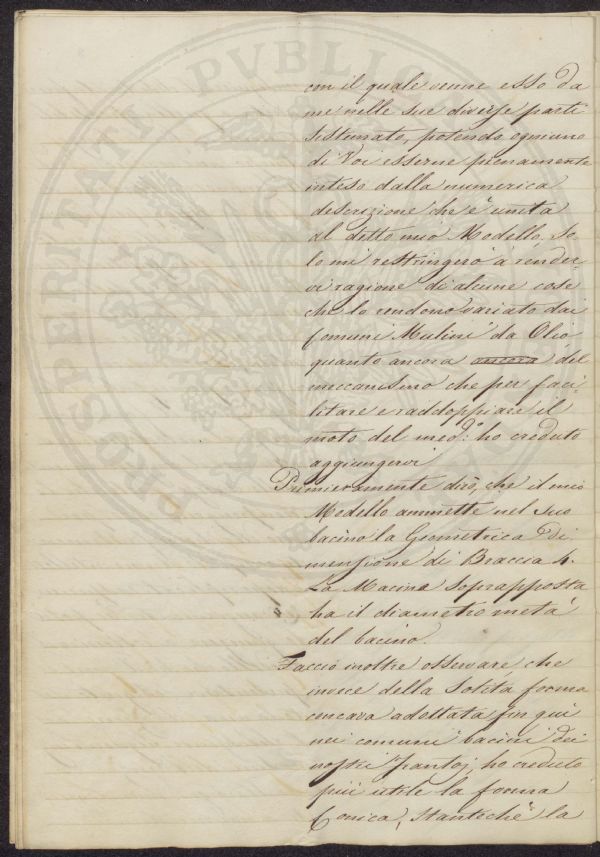 con il quale venne esso da
me nelle sue diverse parti
sistemato, potendo ogniuno
di Voi esserne pienamente
inteso dalla numerica
descrizione che è unita
al detto mio Modello, So-
lo mi restringerò a render-
vi ragione di alcune cose
che lo rendono variato dai
comuni Mulini da Olio
quanto ancora ancora del
meccanismo che per faci-
litare e raddoppiare il
moto del med.o: ho creduto
aggiungervi
Primieramente dirò, che il mio
Modello ammette nel suo
bacino la Geometrica Di-
mensione di Braccia 4.
La Macina soprapposta
ha il diametro metà
del bacino.
Faccio inoltre osservare che
invece della solita forma
concava adottata fin quì
nei comuni bacini dei
nostri Frantoj, ho creduto
più utile la forma
Conica, stanteché la
PROSPERITATI PVBLIC